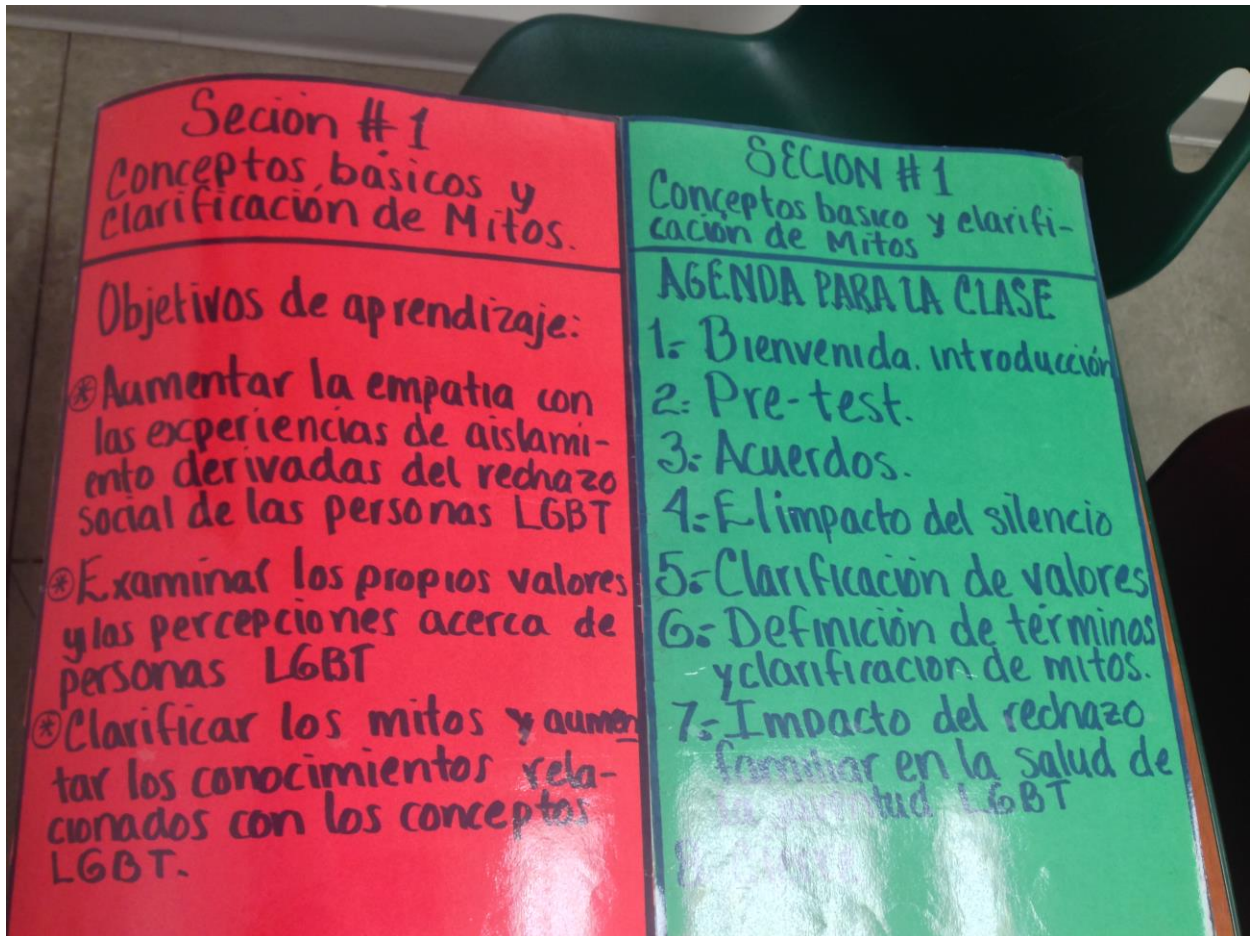 Seción #1
Conceptos básicos y
Clarificación de Mitos.
Objetivos de aprendizaje:
* Aumentar la empatia con
las experiencias de aislami-
ento derivadas del rechazo
social de las personas LGBT
* Examinar los propios valores
y las percepciones acerca de
personas LGBT
* Clarificar los mitos y aumen
tar los conocimientos rela-
cionados con los conceptos
LGBT.
SECION #1
Conceptos basico y clarifi-
cación de Mitos
AGENDA PARA LA CLASE
1.- Bienvenida. introducción
2.- Pre-test.
3.- Acuerdos.
4.- El impacto del silencio
5.- Clarificación de valores
6.- Definición de términos
y clarificacion de mitos.
7.- Impacto del rechazo
familiar en la salud de
la juventud LGBT
8